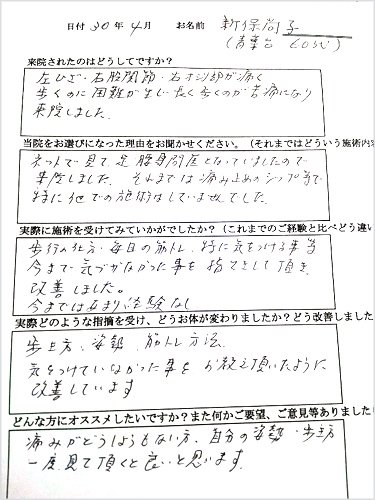 日付 30 年 4 月 お名前 新保尚子
(青葉台 60代)
来院されたのはどうしてですか?
左ひざ・右股関節・右オシリが痛く
歩くのに困難が生じ長く歩くのが苦痛になり
来院しました。
当院をお選びになった理由をお聞かせください。(それまではどういう施術内
ネットで見て足腰専門となっていましたので
来院しました。それまでは痛み止めのシップ等で
特に他での施術はしていませんでした。
実際に施術を受けてみていかがでしたか?(これまでのご経験と比べどう違い
歩行の仕方・毎日の筋トレ、特に気をつける事等
今まで気づかなかった事を指てきして頂き
改善しました。
今まではあまり経験なし
実際どのような指摘を受け、どうお体が変わりましたか?どう改善しました
歩き方、姿勢、筋トレ方法、
気をつけていなかった事をお教え頂いたように
改善しています
どんな方にオススメしたいですか?また何かご要望、ご意見等ありました
痛みがどうしようもない方、自分の姿勢・歩き方
一度見て頂くと良いと思います。